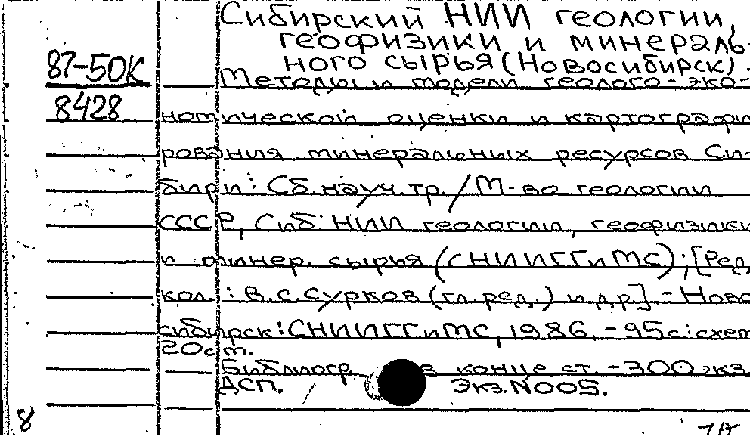 Сибирский НИИ геологии,
геофизики и минераль-
ного сырья (Новосибирск).
87-50К
Методы и модели геолого-эко-
8428
номической оценки и картографи
рования минеральных ресурсов Си-
бири: Сб. науч. тр. / М-во геологии
СССР, Сиб. НИИ геологии, геофизики
и минер. сырья (СНИИГГиМС); [Ред.
кол.: В.С. Сурков (гл. ред.) и др.] - Ново
сибирск: СНИИГГиМС, 1986. - 95с.: схем
20см.
Библиогр. в конце ст. - 300 экз.
ДСП. Экз. N005.
8